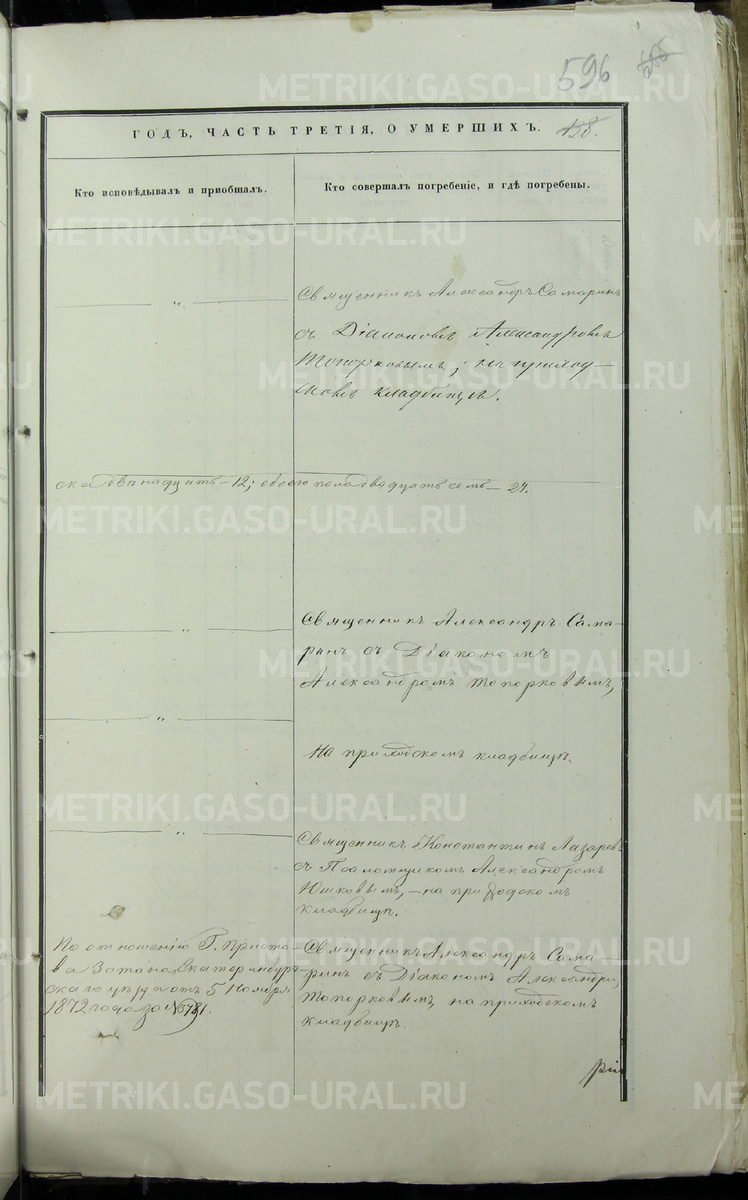 596
ГОДЪ, ЧАСТЬ ТРЕТІЯ, О УМЕРШИХЪ. 138.
Кто исповѣдывалъ и пріобщалъ.
Кто совершалъ погребеніе, и гдѣ погребены.
METRIKI.GASO-URAL.RU
— „ —
Священникъ Александръ Самаринъ
съ Діакономъ Александромъ
Топорковымъ; на приход-
скомъ кладбищѣ.
ска двѣнадцать – 12; обоего пола двадцать семь –
Священникъ Александръ Сама-
ринъ съ Діакономъ
Александромъ Топорковымъ,
на приходскомъ кладбищѣ.
— „ —
— „ —
— „ —
Священникъ Константинъ Лазаревъ
съ Псаломщикомъ Александромъ
Юшковымъ, – на приходскомъ
кладбищѣ.
По отношенію Г. Приста-
ва 2 стана Екатеринбург-
скаго уѣзда отъ 5 Ноября
1872 года за № 3781.
Священникъ Александръ Сама-
ринъ съ Діакономъ Александр.
Топорковымъ, на приходскомъ
кладбищѣ.